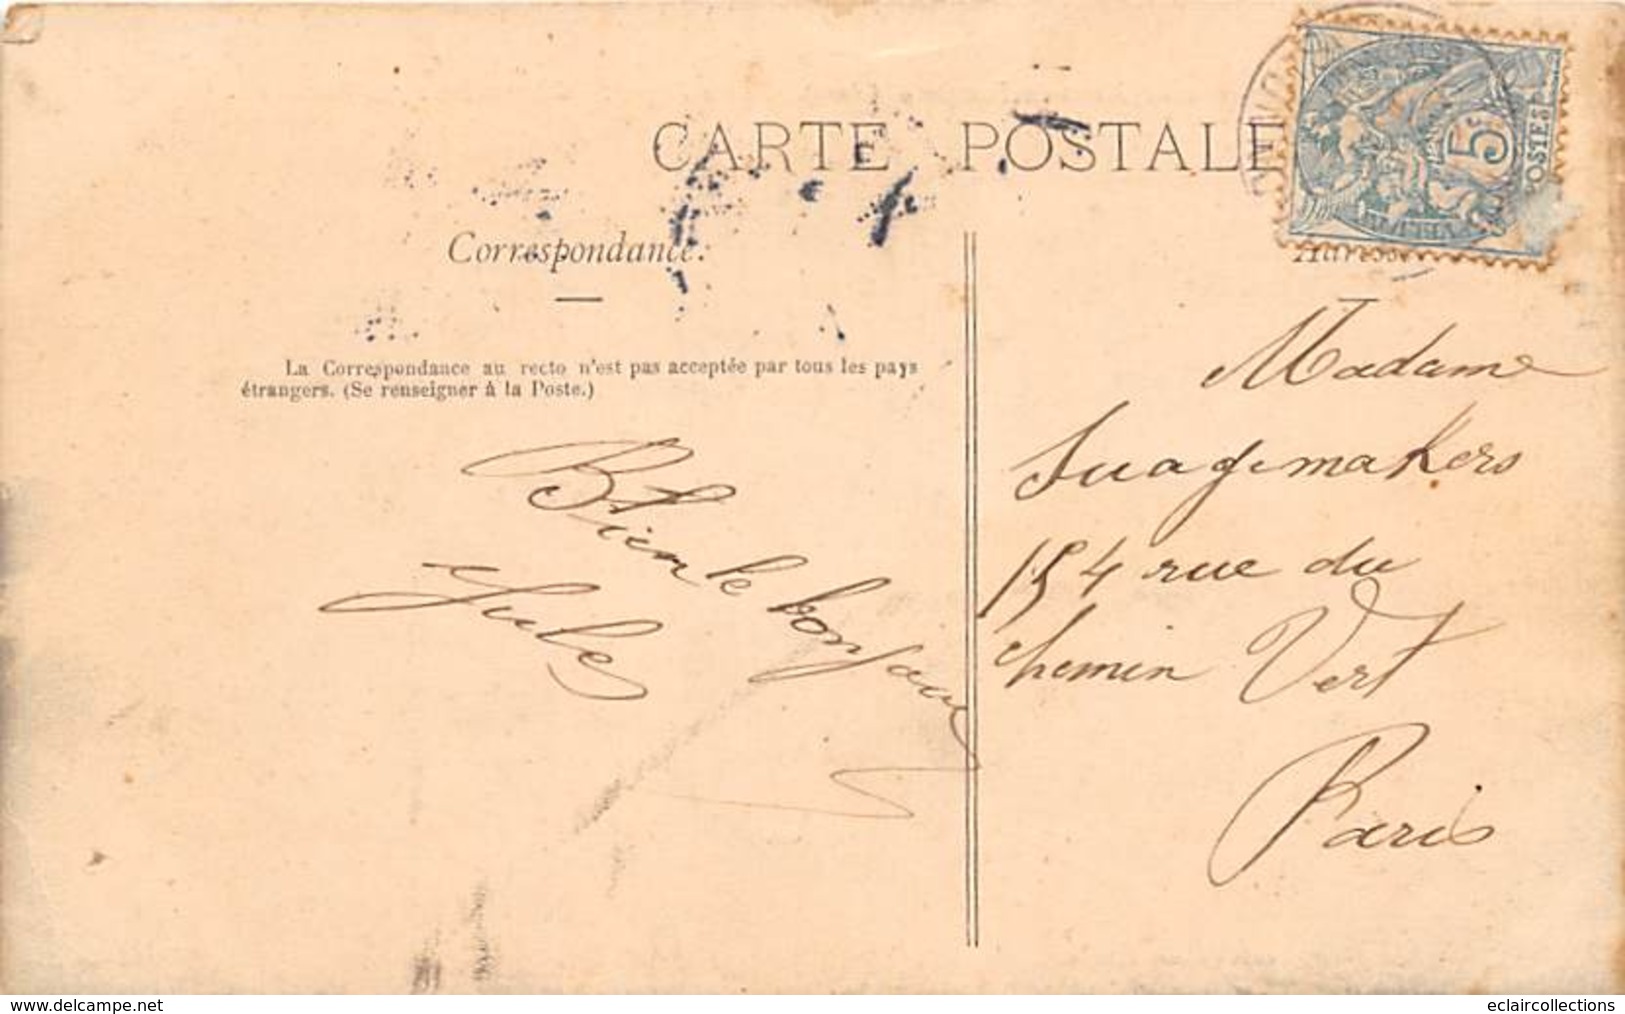 CARTE POSTALE
5c
POSTES
Correspondance.
Adresse
La Correspondance au recto n'est pas acceptée par tous les pays
étrangers. (Se renseigner à la Poste.)
Bien le bonjour
Jules
Madame
Suagemakers
154 rue du
chemin Vert
Paris
www.delcampe.net
eclaircollections